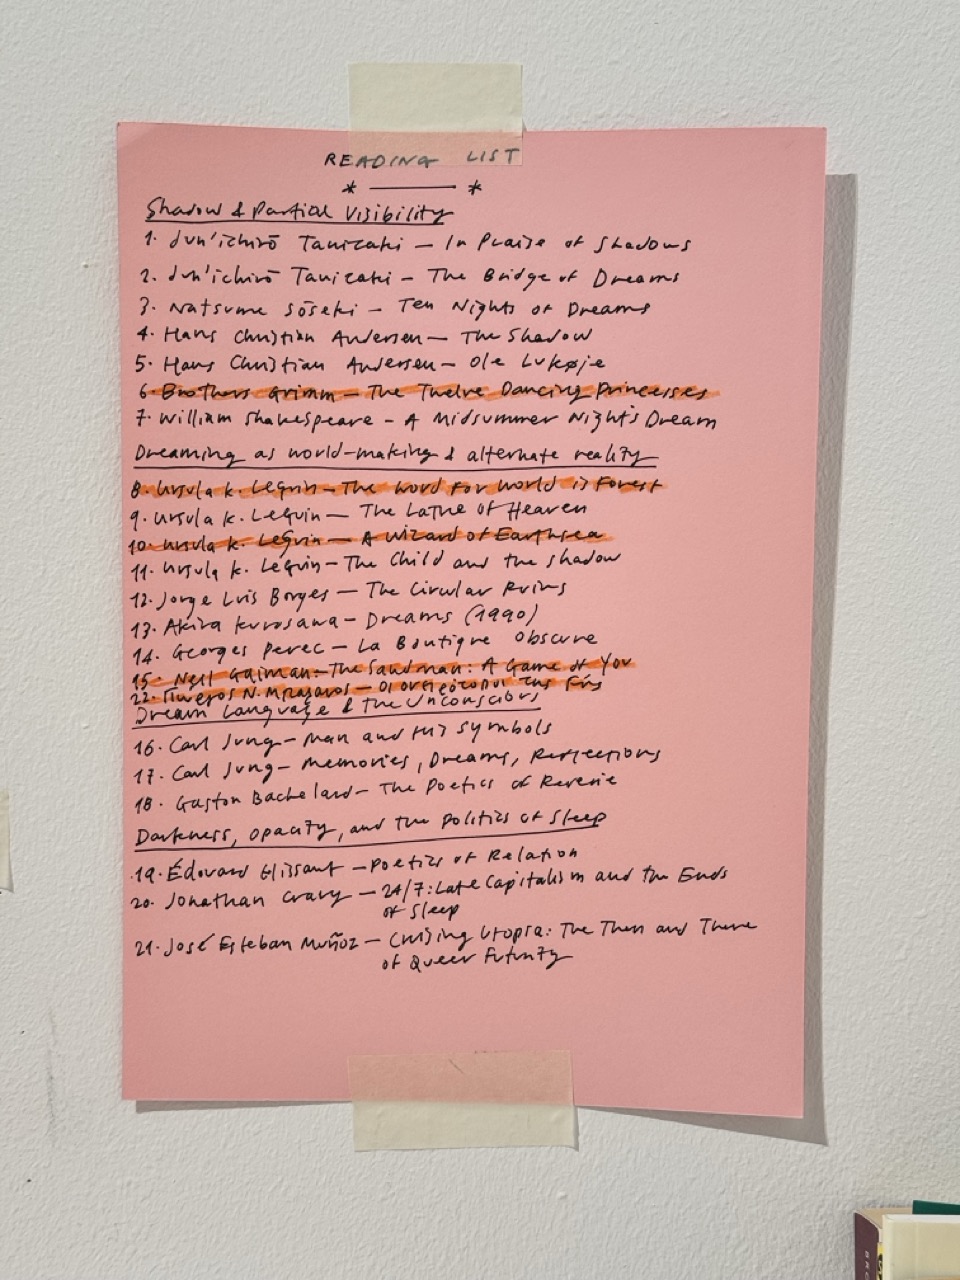 READING LIST
* ——— *
Shadow & Partial Visibility
1. Jun'ichirō Tanizaki — In Praise of Shadows
2. Jun'ichirō Tanizaki — The Bridge of Dreams
3. Natsume Sōseki — Ten Nights of Dreams
4. Hans Christian Andersen — The Shadow
5. Hans Christian Andersen — Ole Lukøje
6. Brothers Grimm — The Twelve Dancing Princesses
7. William Shakespeare - A Midsummer Night's Dream
Dreaming as world-making & alternate reality
8. Ursula K. LeGuin — The Word for World is Forest
9. Ursula K. LeGuin — The Lathe of Heaven
10. Ursula K. LeGuin — A Wizard of Earthsea
11. Ursula K. LeGuin — The Child and the Shadow
12. Jorge Luis Borges — The Circular Ruins
13. Akira Kurosawa — Dreams (1990)
14. Georges Perec — La Boutique Obscure
15. Neil Gaiman — The Sandman: A Game of You
22. N. — Οι της Γης
Dream Language & the Unconscious
16. Carl Jung — Man and His Symbols
17. Carl Jung — Memories, Dreams, Reflections
18. Gaston Bachelard — The Poetics of Reverie
Darkness, opacity, and the politics of Sleep
19. Édouard Glissant — Poetics of Relation
20. Jonathan Crary — 24/7: Late Capitalism and the Ends
of Sleep
21. José Esteban Muñoz — Cruising Utopia: The Then and There
of Queer Futurity